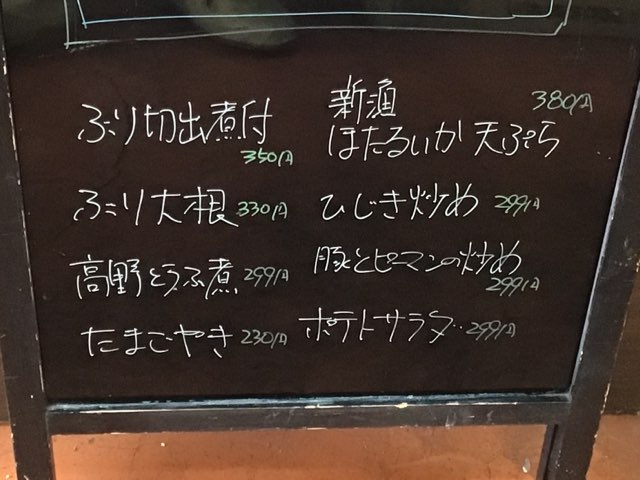 ぶり切出煮付
350円
ぶり大根 330円
高野とうふ煮 299円
たまごやき 230円
新漁 380円
ほたるいか天ぷら
ひじき炒め 299円
豚とピーマンの炒め
299円
ポテトサラダ 299円